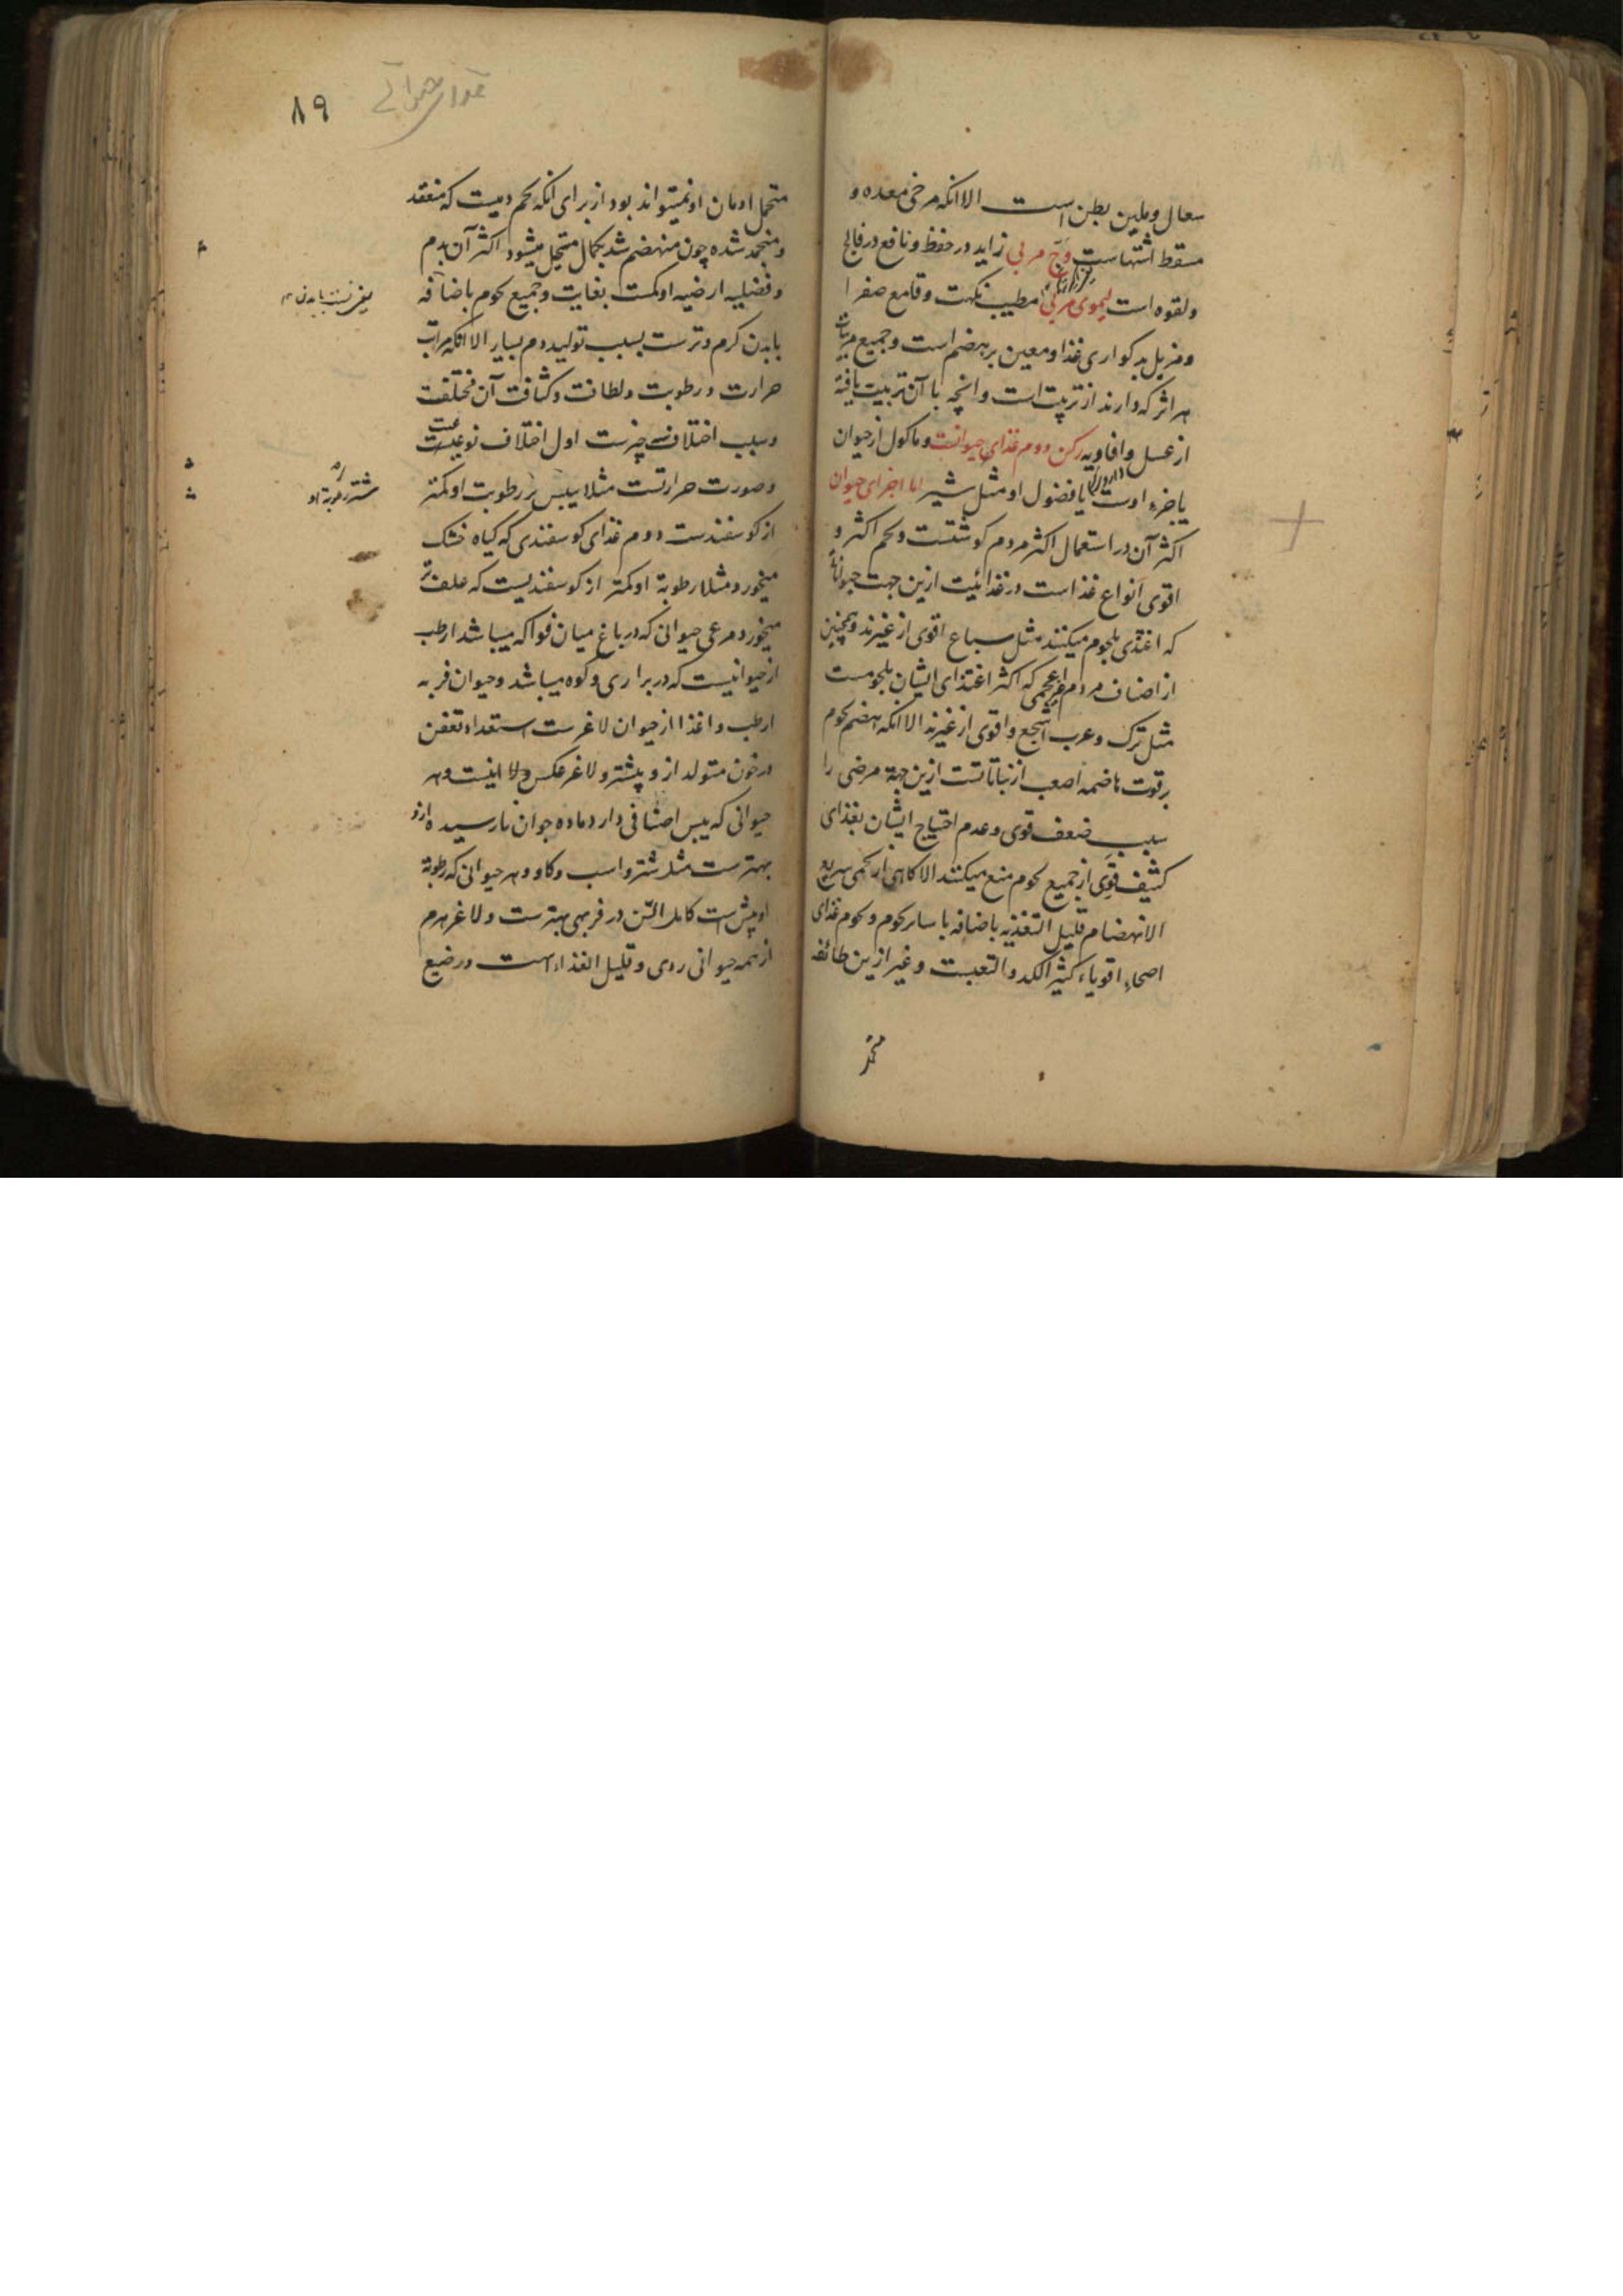 سعال و ملین بطن است الا انکه مرخی معده و
مسقط اشتهاست وج مربی زاید در حفظ و نافع در فالج
و لقوه است لیموی مربی مطیب نکهت و قامع صفرا
و مزیل بدکواری غذا و معین بر هضم است و جمیع مربیات
هر اثر که دارند از تربیت است و انچه با آن تربیت یافته
از عسل و افاویه رکن دوم غذای حیوانیت و ماکول از حیوان
یا جزء اوست یا فضول او مثل شیر اما اجزای حیوان
اکثر آن در استعمال اکثر مردم کوشتست و لحم اکثر و
اقوی انواع غذاست در غذائیت ازین جهت حیوانات
که اغتذی بلحوم میکنند مثل سباع اقوی از غیرند و همچنین
از اصناف مردم که اکثر اغتذای ایشان بلحومست
مثل ترک و عرب اشجع و اقوی از غیرند الا انکه هضم لحوم
بر قوت هاضمه اصعب از نباتاتست ازین جهة مرضی را
بسبب ضعف قوی و عدم احتیاج ایشان بغذای
کثیف قوی از جمیع لحوم منع میکنند الا کاهی از لحمی سریع
الانهضام قلیل التغذیه باضافه با سایر لحوم و لحوم غذای
اصحاء اقویاء کثیر الکد و التعبست و غیر ازین طائفه
متحمل
۸۹
غذای حیوانی
متحمل ادمان او نمیتواند بود از برای انکه لحم دمیست که منعقد
و منجمد شده چون منهضم شد بکمال متحیل میشود اکثر آن بدم
و فضلیه ارضیه او کمست بغایت و جمیع لحوم باضافه
با بدن کرم و ترست بسبب تولید دم بسیار الا انکه مراتب
حرارت و رطوبت و لطافت و کثافت آن مختلفست
و سبب اختلاف سه چیزست اول اختلاف نوعیست
و صورت حرارتست مثلا یبس بز رطوبت او کمتر
از کوسفندست دوم غذای کوسفندی که کیاه خشک
میخورد مثلا رطوبة او کمتر از کوسفندیست که علف تر
میخورد و مرعی حیوانی که در باغ میان فواکه میباشد ارطب
از حیوانیست که در براری و کوه میباشد و حیوان فربه
ارطب و اغذا از حیوان لاغرست استعداد تعفن
در خون متولد ازو بیشتر و لاغر عکس و هر
حیوانی که یبس اضافی دارد ماده جوان نارسیده ازو
بهترست مثل شتر و اسب و کاو و هر حیوانی که رطوبة
او بیش است کامل السن در فربهی بهترست و لاغر هرم
از همه حیوانی ردی و قلیل الغذاء است و رضیع